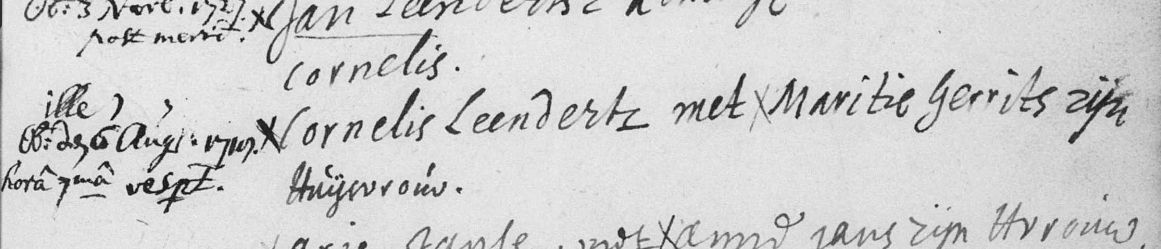 Ob: 3 Nov: 1727. × Jan Leendertsz
post merid:
Cornelis.
ille
Ob: d: 6 Aug: × Cornelis Leendertz met × Maritie Gerrits zijn
horâ 7mâ vespt. Huijsvrouw.
Jans zijn Hvrouw.